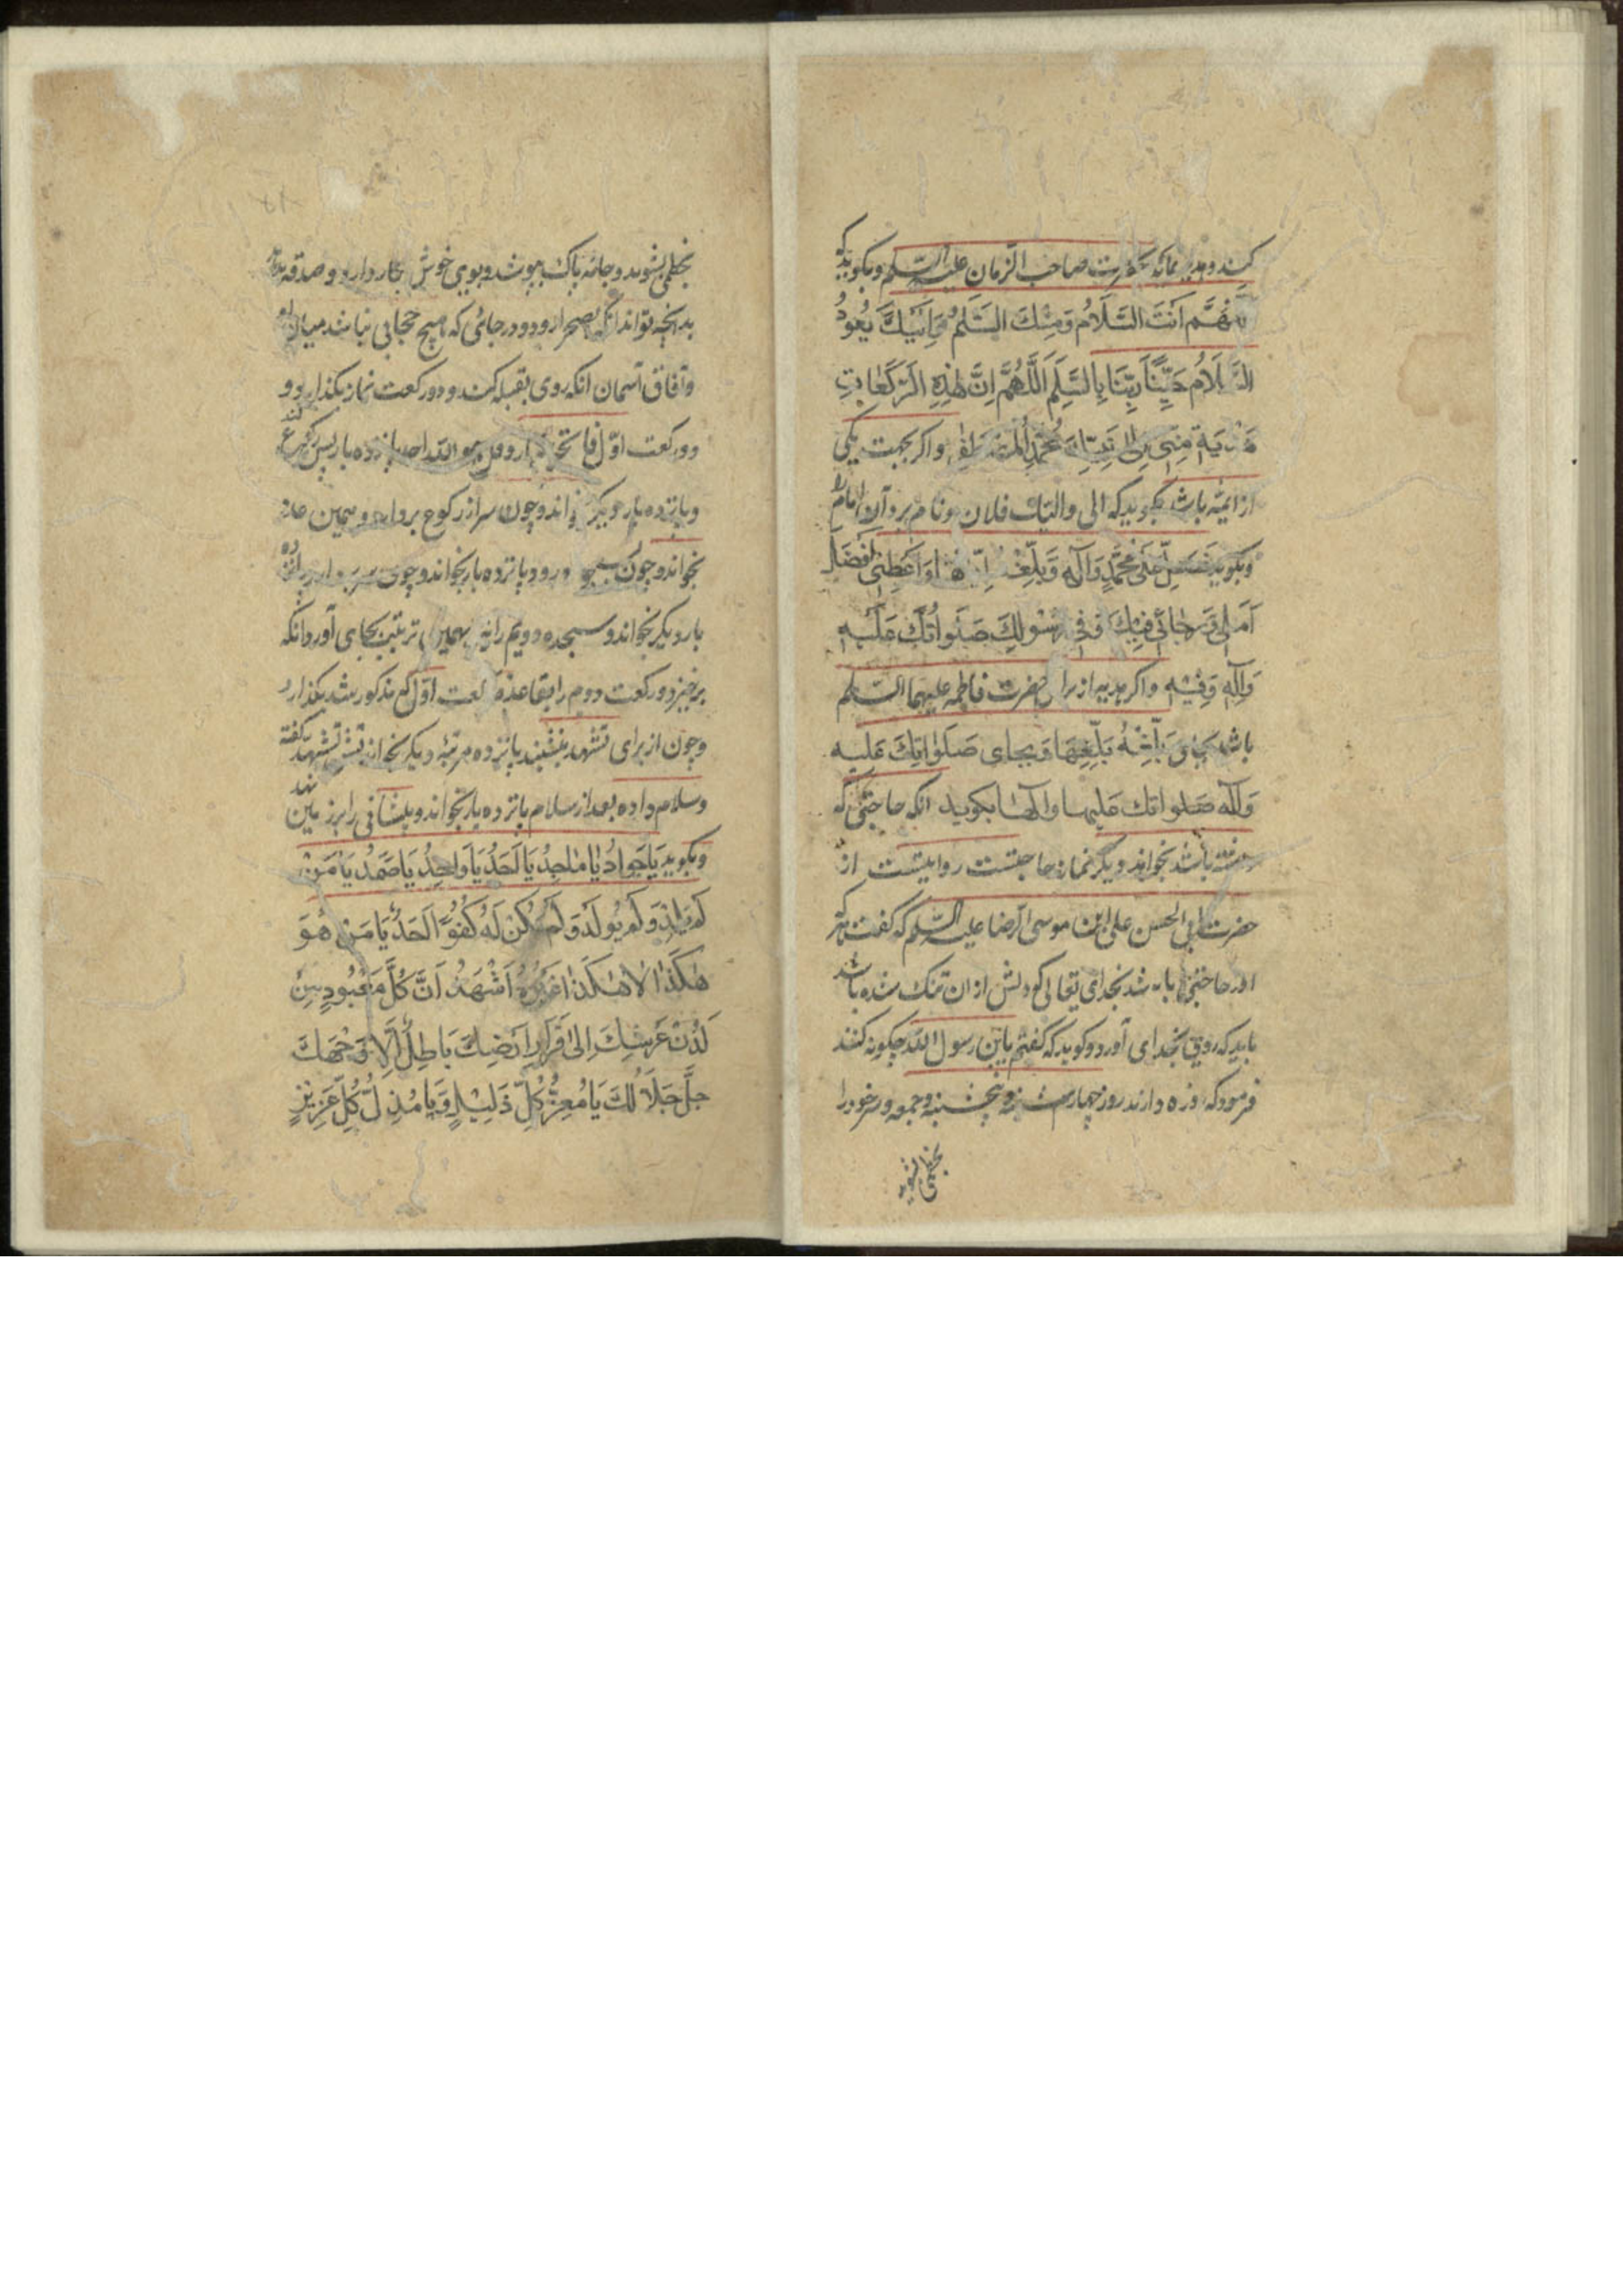 کند و هدیه نماید بحضرت صاحب الزمان علیه السلم و بکوید که
اَللّهُمَّ اَنْتَ السَّلَامُ وَمِنْكَ السَّلٰمُ وَاِلَيْكَ يَعُودُ
السَّلَامُ حَيِّنَا رَبَّنَا بِالسَّلٰمِ اَللّٰهُمَّ اِنَّ هٰذِهِ الرَّكَعٰاتِ
هَدِيَة مِنّي اِلٰى نَبِيِّكَ مُحَمَّدٍ المُصْطَفٰى و اکر بجهت یکی
از ایمّه باشد بکوید که الی ولیّك فلان و نام برد آن امام را
و بکوید فَصَلِّ عَلٰى مُحَمَّدٍ وَآلِهِ وَبَلِّغْهُ اِيّٰاهٰا وَاَعْطِنِي اَفْضَلَ
اَمَلِي وَرَجٰائِي فِيكَ وَفِي رَسُولِكَ صَلَواتُكَ عَلَيْهِ
وَآلِهِ وَفِيْهِ و اکر هدیه از برای حضرت فاطمه علیهما السلم
باشد بجای وَبَلِّغْهُ بَلِّغْهَا وَبجای صَلَوٰاتِكَ عَلَيه
وَآلِهِ صَلواتك عَلیها وآلها بکوید انکه حاجتی که
باشد بخواهد دیکر نماز حاجتست روایتست از
حضرت ابی الحسن علی ابن موسی الرضا علیه السلم که کفت هر که
اورا حاجتی باشد بخدای تعالی که دلش از ان تنک شده باشد
باید که روی بخدای آورد و کوید که کفتم یابن رسول الله چکونه کنند
فرمود که روزه دارند روز چهارشنبه و پنجشنبه و جمعه و سر خود را
بخطمی بشوید
بخطمی بشوید و جامه پاک بپوشد و بوی خوش بکار دارد و صدقه بدهد
بدانچه تواند انکه بصحرا رود و در جائی که هیچ حجابی نباشد میان او
و آفاق آسمان انکه روی بقبله کند و دو رکعت نماز بکذارد و
در رکعت اوّل فاتحه یکبار و قل هو الله احد پانزده بار پس رکوع کند
و پانزده بار دیکر بخواند و چون سر از رکوع بردارد همین عدد
بخواند و چون بسجود رود پانزده بار بخواند و چون سر بردارد پانزده
بار دیکر بخواند و سجده دویم را نیز بهمین ترتیب بجای آورد و انکه
برخیزد و رکعت دوم را بقاعده رکعت اوّل که مذکور شد بکذارد
و چون از برای تشهد بنشیند پانزده مرتبه دیکر بخواند پس تشهد کفته
و سلام داده بعد از سلام پانزده بار بخواند و پیشانی را بر زمین نهد
و بکوید يَا جَوادُ يَا مٰاجِدُ يَا اَحَدُ يَا وَاحِدُ يَا صَمَدُ يَا مَنْ
لَمْ يَلِدْ وَلَمْ يُولَدْ وَلَمْ يَكُنْ لَهُ كُفُوًا اَحَدٌ يَا مَنْ هُوَ
هٰكَذٰا لٰا هٰكَذٰا غَيْرُهُ اَشْهَدُ اَنَّ كُلَّ مَعْبُودٍ مِنْ
لَدُنْ عَرْشِكَ اِلىٰ قَرَارِ اَرْضِكَ بَاطِلٌ اِلَّا وَجْهَكَ
جَلَّ جَلَالُكَ يَا مُعِزُّ كُلِّ ذَلِيْلٍ وَيَا مُذِلُّ كُلِّ عَزِيْزٍ